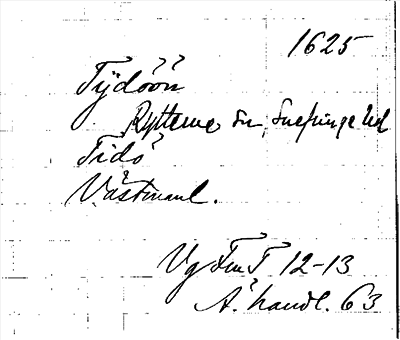 1625
Tydöön
Rytterne Sn, Snefringe Hd
Tidö
Västmanl.
Vg Fm T 12-13
A. handl. 63